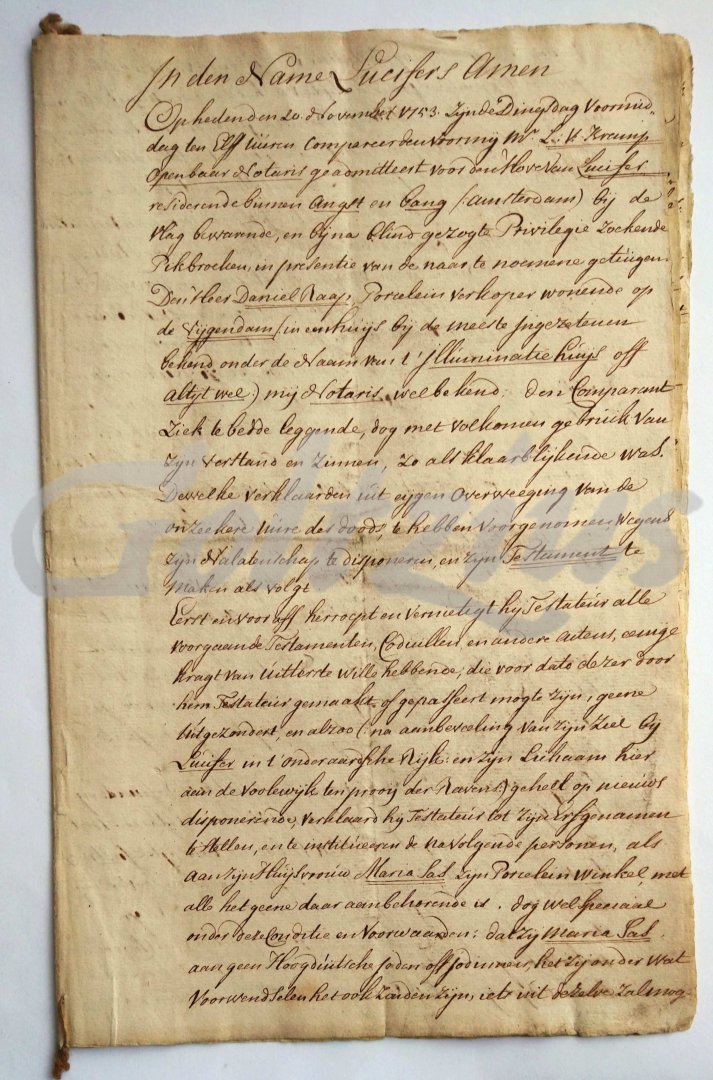 In den Name Lucifers Amen
Op heden den 20 November 1753 zijnde Dingsdag voormid-
dag ten Elff uuren Compareerden voor mij Mr. L: V: Kremp
openbaar Notaris geadmitteert voor den Hove van Lucifer
resideerende binnen Angst en Bang (Amsterdam) bij de
vlag bewarende, en bijna blind gezogte Privilegie Zoekende
Pikbroeken, in presentie van de naar te noemene getuigen.
Den Heer Daniel Raap, Porcelein verkoper wonende op
de Vijgendam (in een huijs bij de meeste Ingezetenen
bekend onder de Naam van t' Illuminatie huijs off
altijt wel.) mij Notaris welbekend: den Comparant
Ziek te bedde leggende, dog met volkomen gebruik van
zijn verstand en Zinnen, zo als klaarblijkende was.
Dewelke verklaarden uit eijgen overweeging van de
onzeekere uure des doods, te hebben voorgenomen wegens
zijn Nalatenschap te disponeren, en zijn Testament te
Maken als volgt
Eerst en voor aff herroept en vernietigt hij Testateur alle
voorgaande Testamenten, Codicillen en andere actens, eenige
kragt van uitterste wille hebbende, die voor dato dezer door
hem Testateur gemaakt of gepasseert mogte zijn, geene
uitgezondert, en alzoo (na aanbeveeling van zijn Ziel bij
Lucifer in t'onderaardsche Rijk: en zijn Lichaam hier
aan de Voolewijk ten prooij der Ravens) geheel op nieuws
disponerende, verklaard hij Testateur tot zijn Erfgenamen
te stellen, en te institueeren de na volgende personen, als
aan zijn Huijsvrouw Maria Sas zijn Porcelein winkel, met
alle het geene daar aanbehorende is. dog wel speciaal
onder deze Conditie en voorwaarden: dat zij Maria Sas
aan geen Hoogduitsche Joden off Jodinnen, het zij onder wat
voorwendselen het ook zouden zijn, iets uit dezelve zal mog-
Geheugens